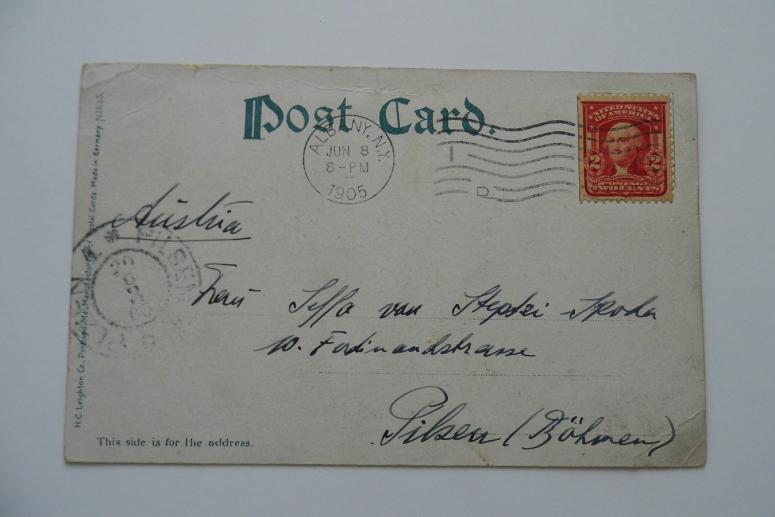 Post Card.
ALBANY, N.Y.
JUN 8
8-PM
1905
D
UNITED STATES
OF AMERICA
2 2
POSTAGE
TWO CENTS
Austria
PILSEN
Frau
10. Ferdinandstrasse
Pilsen (Böhmen)
This side is for the address.
H.C. Leighton Co., Portland, Me. Manufacturers of Postal Cards. Made in Germany